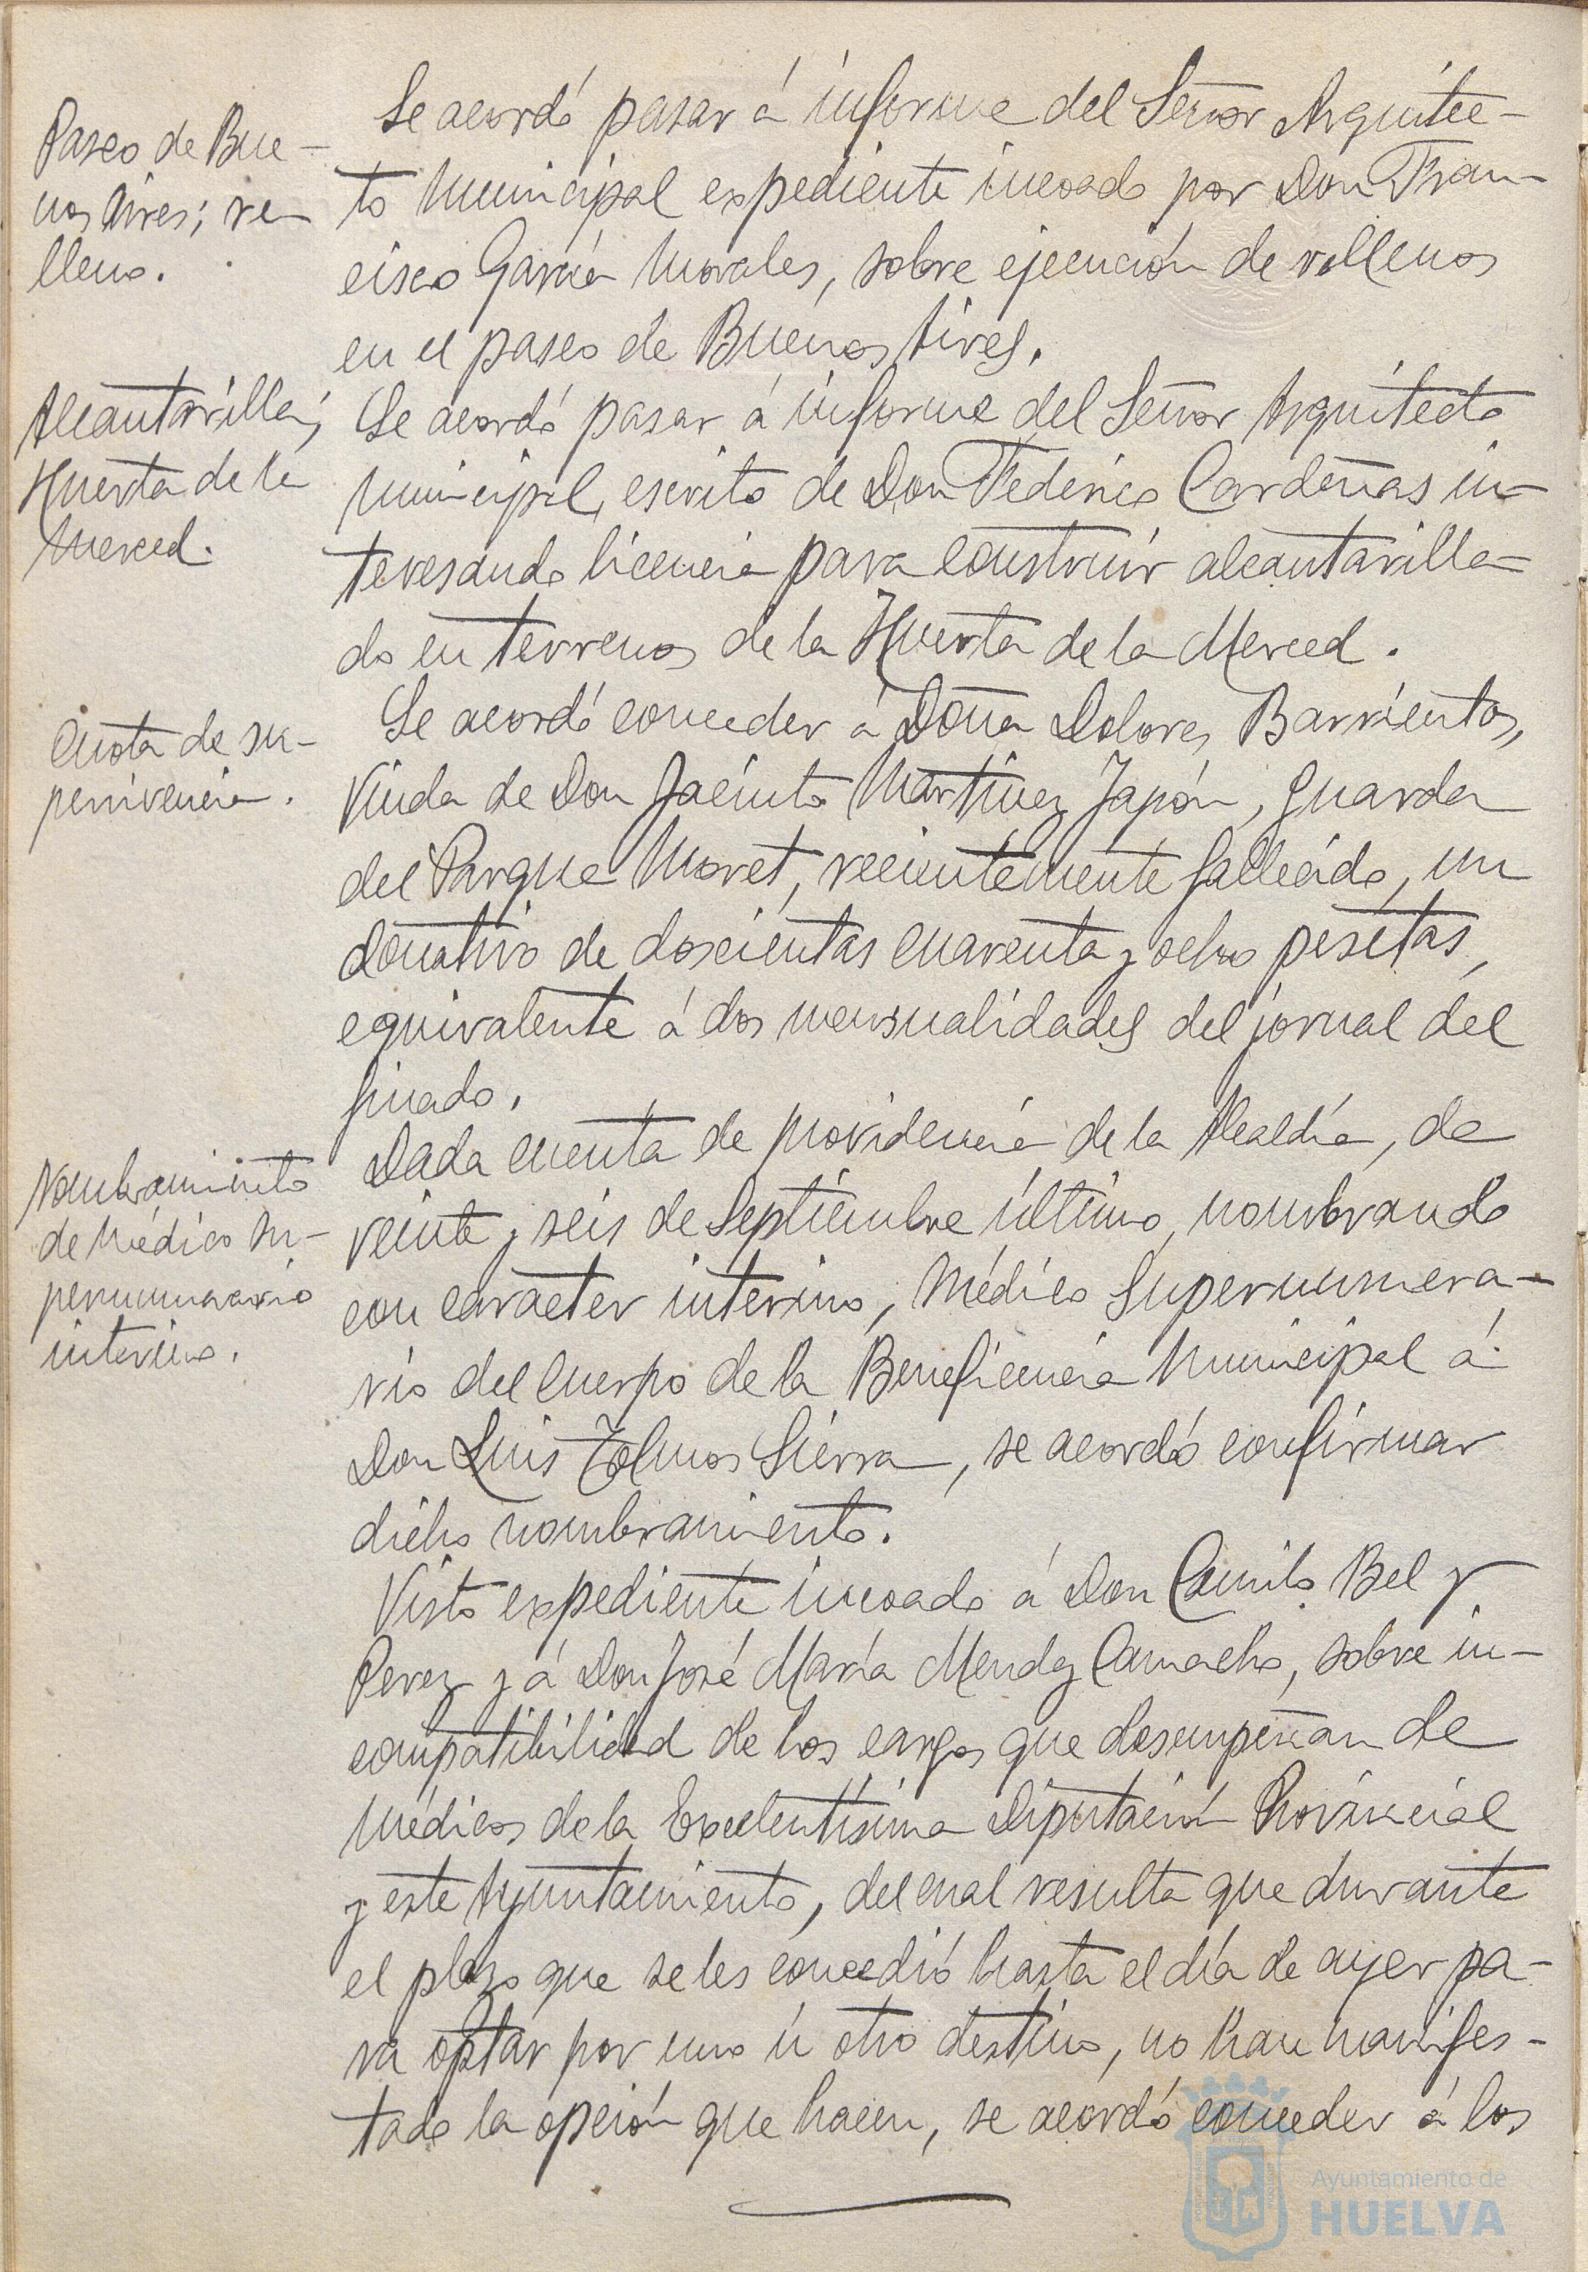 Paseo de Bue-
nos Aires; re-
lleno.
Se acordó pasar á informe del Señor Arquitec-
to Municipal expediente incoado por Don Fran-
cisco García Morales, sobre ejecución de rellenos
en el paseo de Buenos Aires.
Alcantarilla;
Huerta de la
Merced.
Se acordó pasar á informe del Señor Arquitecto
Municipal, escrito de Don Federico Cardeñas in-
teresando licencia para construir alcantarilla-
do en terrenos de la Huerta de la Merced.
Cuota de su-
pervivencia.
Se acordó conceder á Doña Dolores Barrientos,
Viuda de Don Jacinto Martínez Japón, guarda
del Parque Moret, recientemente fallecido, un
donativo de doscientas cuarenta y ocho pesetas,
equivalente á dos mensualidades del jornal del
finado.
Nombramiento
de Médico su-
pernumerario
interino.
Dada cuenta de providencia de la Alcaldía, de
veinte y seis de Septiembre último, nombrando
con carácter interino, Médico Supernumera-
rio del Cuerpo de la Beneficencia Municipal á
Don Luis Tolmos Sierra, se acordó confirmar
dicho nombramiento.
Visto expediente incoado á Don Camilo Bel y
Perez y á Don José María Mendez Camacho, sobre in-
compatibilidad de los cargos que desempeñan de
Médicos de la Excelentísima Diputación Provincial
y este Ayuntamiento, del cual resulta que durante
el plazo que se les concedió hasta el día de ayer pa-
ra optar por uno ú otro destino, no han manifes-
tado la opción que hacen, se acordó conceder á los
Ayuntamiento de
HUELVA